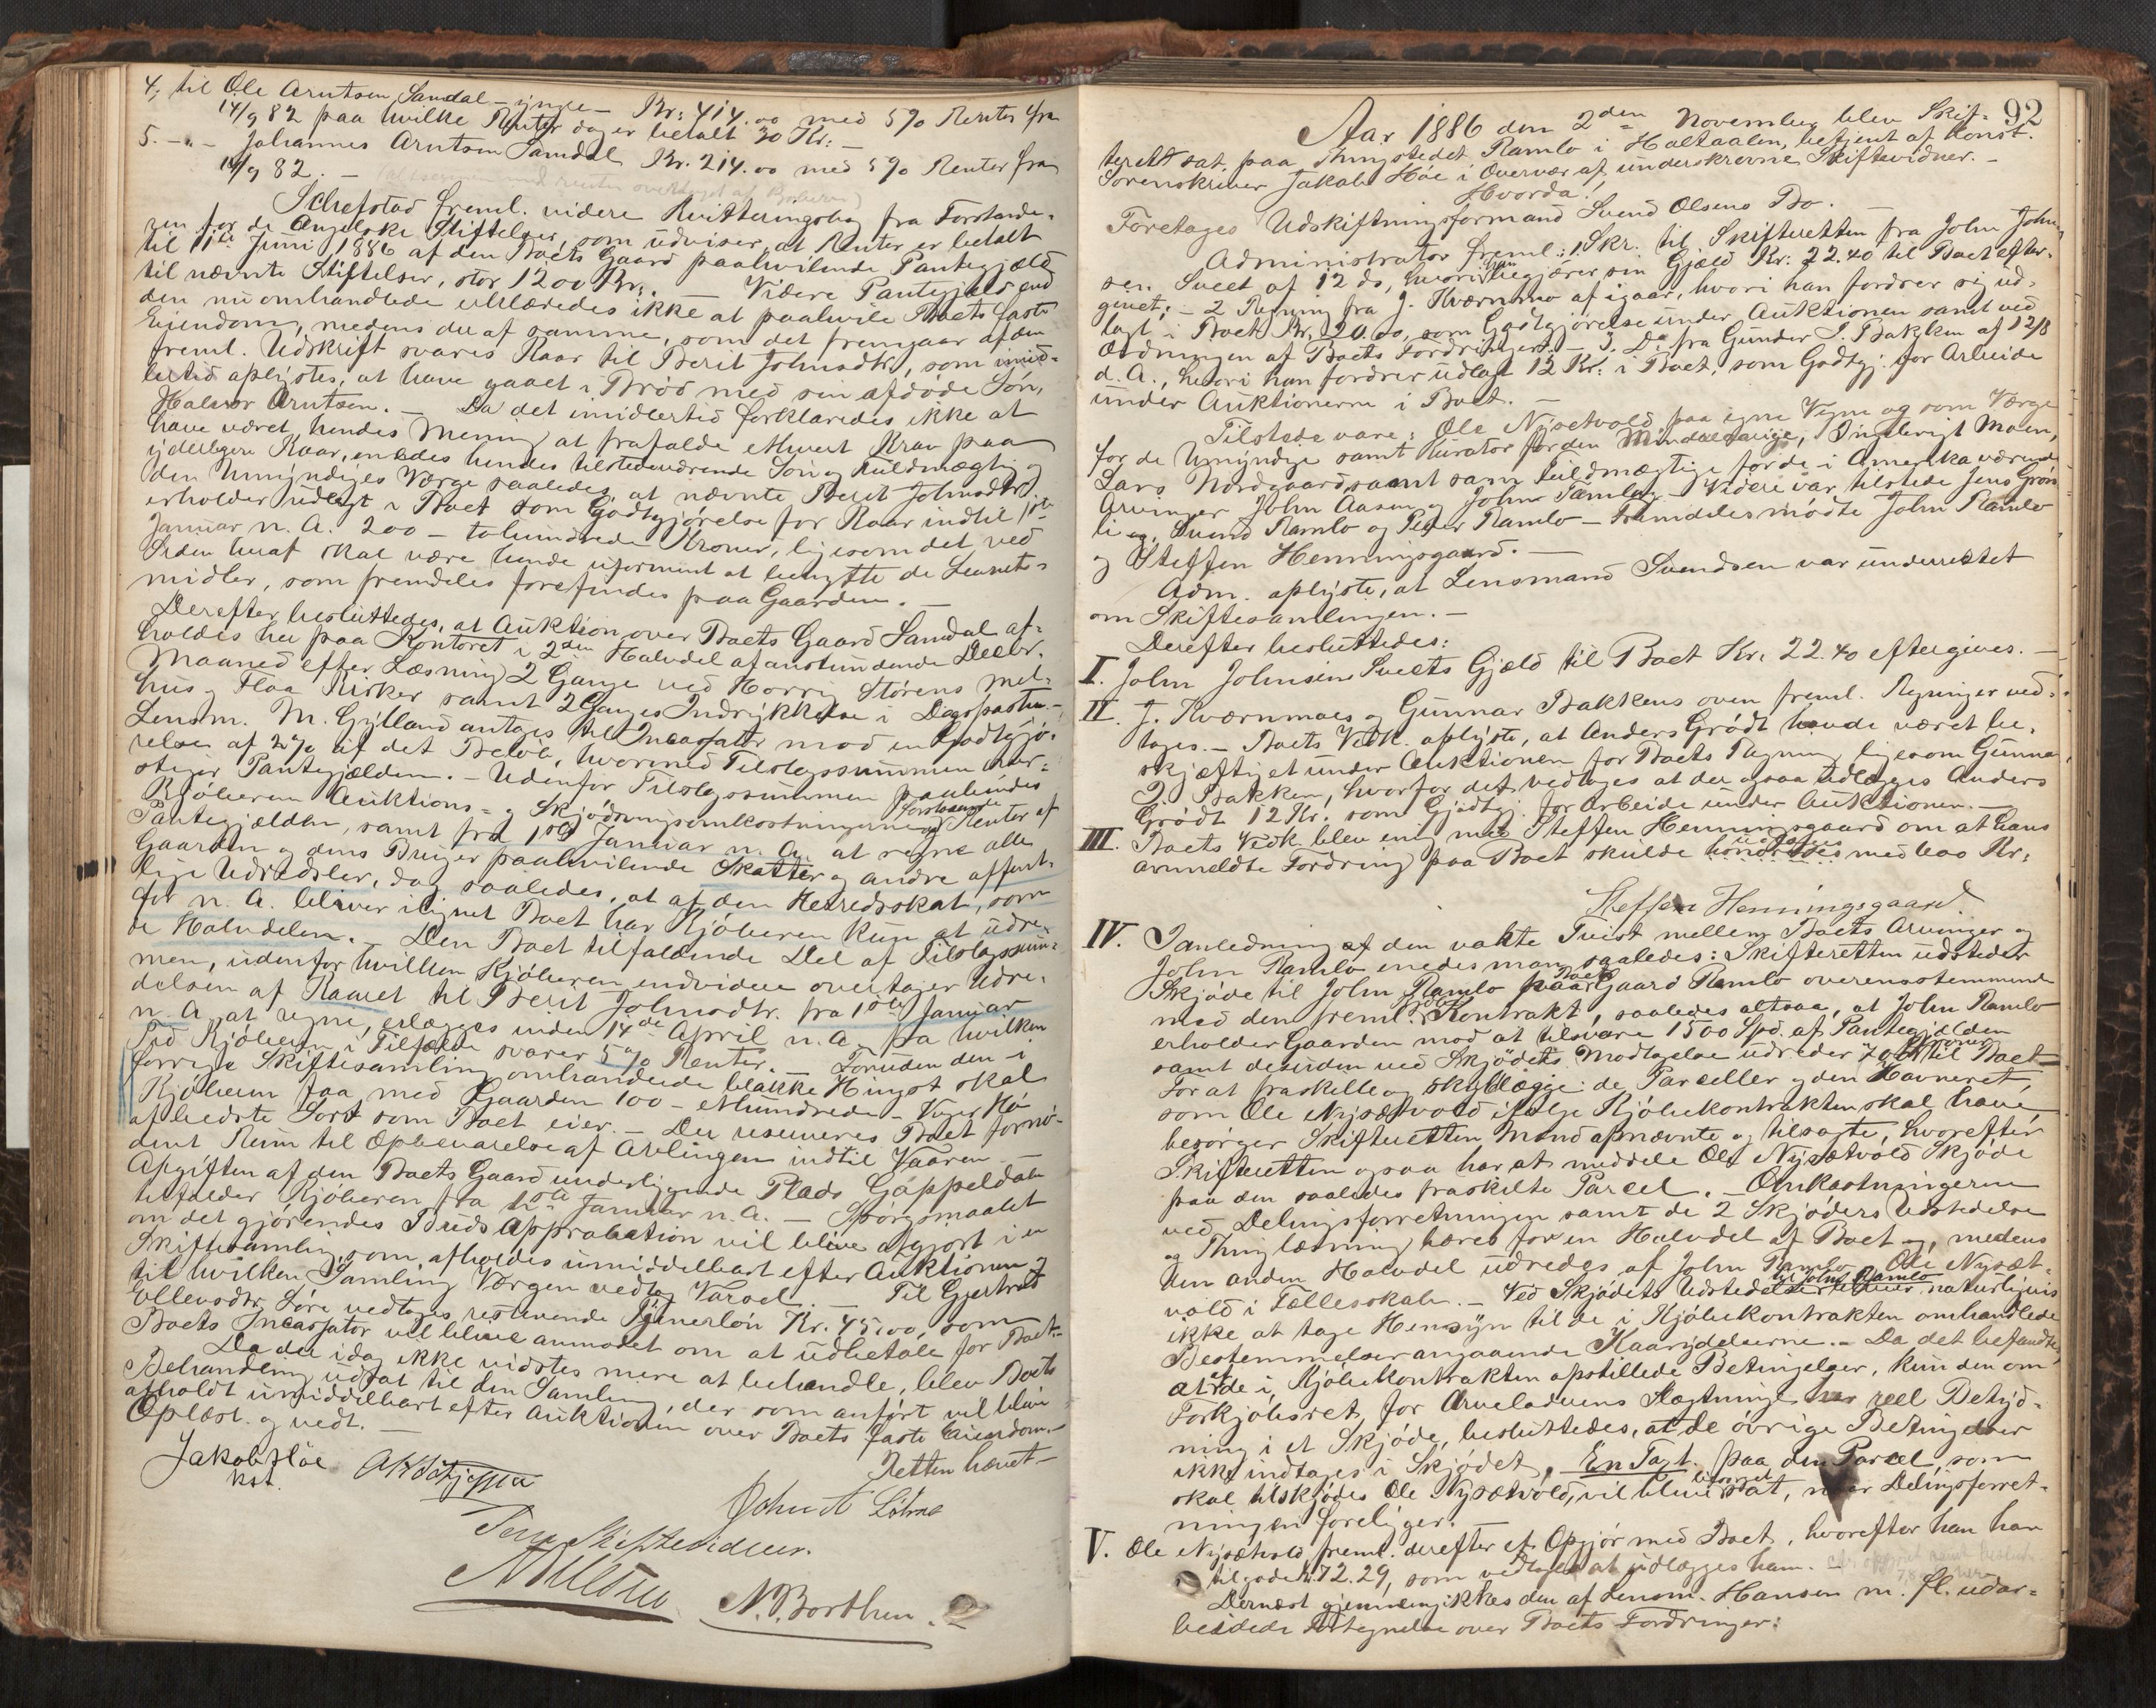 4, til Ole Arntsen Samdal - yngre - Kr: 414.00 med 5% Renter fra
14/9 82 paa hvilke Renter dog er betalt 30 Kr: -
5. -„- Johannes Arntsen Samdal Kr. 214.00 med 5% Renter fra
14/9 82. -
Schefstad freml. videre Kvitteringsbog fra Forstande-
ren for de Angelske Stiftelser, som udviser, at Renter er betalt
til 11te Juni 1886 af den Boets Gaard paahvilende Pantegjæld
til nævnte Stiftelser, stor 1200 Kr. - Videre Pantegjæld end
den nu omhandlede erklæredes ikke at paahvile Boets faste
Eiendom, medens der af samme, som det fremgaar af den
freml. Udskrift svares Kaar til Berit Johnsdtr, som imid-
lertid oplystes, at have gaaet i Brød med sin afdøde Søn,
Halvor Arntsen. - Da det imidlertid forklaredes ikke at
have været hendes Mening at frafalde ethvert Krav paa
yderligere Kaar, enedes hendes tilstedeværende Søn og Fuldmægtig og
den Umyndiges Værge saaledes, at nævnte Berit Johnsdtr
erholder udlagt i Boet som Godtgjørelse for Kaar indtil 1ste
Januar n. A. 200 - tohundrede Kroner, ligesom det ved
Siden heraf skal være hende uformeent at benytte de Levnets-
midler, som fremdeles forefindes paa Gaarden. -
Derefter besluttedes, at Auktion over Boets Gaard Samdal af-
holdes her paa Kontoret i 2den Halvdel af anstundende Decbr.
Maaned efter Læsning 2 Gange ved Horrig Størens Mel-
hus og Flaa Kirker samt 2 Ganges Indrykkelse i Dagsposten -
Lensm. M. Gylland antages til Incassator mod en Godtgjø-
relse af 2% af det Beløb, hvormed Tilslagssummen over-
stiger Pantegjælden. - Udenfor Tilslagssummen paalignes
Kjøberen Auktions- og Skjødningsomkostningerne og Renter af
Pantegjælden, samt fra 1ste Januar n. A. at regne alle
Gaarden og dens Bruger paahvilende Skatter og andre offent-
lige Udredsler, dog saaledes, at af den Herredsskat, som
for n. A. bliver ilignet Boet har Kjøberen kun at udre-
de Halvdelen. - Den Boet tilfaldende Del af Tilslagssum-
men, udenfor hvilken Kjøberen endvidere overtager Udre-
delsen af Kaaret til Berit Johnsdtr. fra 1ste Januar
n. A. at regne, erlægges inden 14de April n. A. fra hvilken
Tid Kjøberen i Tilfælde svarer 5% Renter. - Foruden den i
forrige Skiftesamling omhandlede blakke Hingst skal
Kjøberen faa med Gaarden 100 - ethundrede - Voger Hø
af bedste Sort som Boet eier. - Der reserveres Boet fornø-
dent Rum til Opbevarelse af Avlingen indtil Vaaren -
Afgiften af den Boets Gaard underliggende Plads Gappeldalen
tilfalder Kjøberen fra 1ste Januar n. A. - Spørgsmaalet
om det gjørendes Buds Approbation vil blive afgjort i en
Skiftesamling, som afholdes umiddelbart efter Auktionen og
til hvilken Samling Værgen vedtog Varsel. - Til Gjertrud
Ellensdtr. Løre vedtages resterende Tjenerløn Kr. 45.00, som
Boets Incassator vil blive anmodet om at udbetale for Boet.
Da der idag ikke vidstes mere at behandle, blev Boets
Behandling udsat til den Samling, der som anført vil blive
afholdt umiddelbart efter Auktionen over Boets faste Eiendom. -
Oplæst og vedt. - Retten hævet -
Jakob Høe
kst.
Som Skiftevidner.
N. Borthen.
92
Aar 1886 den 2den November blev Skif-
teret sat paa Thingstedet Ramlo i Holtaalen, betjent af konst.
Sorenskriver Jakob Høe i Overvær af underskrevne Skiftevidner. -
Hvorda!
Foretages Udskiftningsformand Svend Olsens Bo.
Administrator freml: 1, Skr. til Skifteretten fra John John-
sen Sveet af 12 ds, hvori han begjærer sin Gjæld Kr: 22.40 til Boet efter-
givet; - 2 Regning fra J. Kværnmo af igaar, hvori han fordrer sig ud-
lagt i Boet Kr. 20.00, som Godtgjørelse under Auktionen samt ved
Ordningen af Boets Fordringer. - 3. Do fra Gunder J. Bakken af 12/8
d. A., hvori han fordrer udlagt 12 Kr: i Boet, som Godtgj. for Arbeide
under Auktionerne i Boet. -
Tilstede vare: Ole Nysetvold paa egne Vegne og som Værge
for de Umyndige samt Kurator for den Mindreaarige, Ingebrigt Moen,
Lars Nordgaard samt som Fuldmægtige for de i Amerika værende
Arvinger John Aasen og John Tamlag - Videre var tilstede Jens Grøn-
li og Svend Ramlo og Peder Ramlo - Fremdeles mødte John Ramlo
og Steffen Henningsgaard. -
Adm. oplyste, at Lensmand Svendsen var underrettet
om Skiftesamlingen. -
Derefter besluttedes:
I. John Johnsen Sveets Gjæld til Boet Kr. 22.40 eftergives. -
II. J. Kværnmoes og Gunnar Bakkens oven freml. Regninger ved-
tages. - Boets Vedk. oplyste, at Anders Grødt havde været be-
skjæftiget under Auktionen for Boets Regning ligesom Gunnar
J. Bakken, hvorfor det vedtages at der ogsaa udlægges Anders
Grødt 12 Kr. som Godtgj. for Arbeide under Auktionen. -
III. Boets Vedk. blev enig med Steffen Henningsgaard om at hans
anmeldte Fordring paa Boet skulde med 600 Kr:
Steffen Henningsgaard
IV. I anledning af den vakte Tvist mellem Boets Arvinger og
John Ramlo enedes man saaledes: Skifteretten udsteder
Skjøde til John Ramlo paa Boets Gaard Ramlo overensstemmende
med den freml. Kjøbe Kontrakt, saaledes altsaa, at John Ramlo
erholder Gaarden mod at tilsvare 1500 Spd. af Pantegjælden
samt desuden ved Skjødets Modtagelse udreder 70 Kroner til Boet
For at fraskille og skyldlægge de Parceller og den Havneret,
som Ole Nysætvold ifølge Kjøbekontrakten skal have,
besørger Skifteretten Mænd opnævnte og tilsagte, hvorefter
Skifteretten ogsaa har at meddele Ole Nysætvold Skjøde
paa den saaledes fraskilte Parcel. - Omkostningerne
ved Delingsforretningen samt de 2 Skjøders Udstedelse
og Thinglæsning bæres for en Halvdel af Boet og, medens
den anden Halvdel udredes af John Ramlo og Ole Nysæt-
vold i Fællesskab. - Ved Skjødets Udstedelse til John Ramlo bliver naturligvis
ikke at tage Hensyn til de i Kjøbekontrakten omhandlede
Bestemmelser angaaende Kaarydelserne. - Da det befandtes,
at af de i Kjøbekontrakten opstillede Betingelser, kun den om
Forkjøbsret for Arveladerens Slægtninge har reel Betyd-
ning i et Skjøde, besluttedes, at de øvrige Betingelser
ikke indtages i Skjødet. En Taxt paa den Parcel, som
skal tilskjødes Ole Nysætvold, vil blive besørget sat, naar Delingsforret-
ningen foreligger. -
V. Ole Nysætvold freml. derefter et Opgjør med Boet, hvorefter han har
tilgode Kr. 72.29, som vedtoges at udlægges ham. -
Dernæst gjennemgikkes den af Lensm. Hansen m. fl. udar-
beidede Fortegnelse over Boets Fordringer: